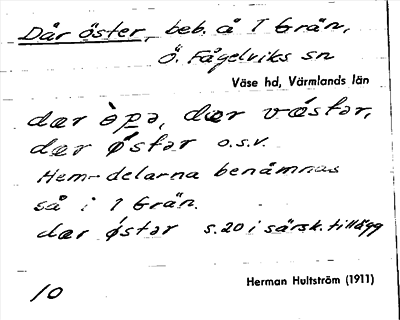 Där öster, beb. å 1 Grän,
Ö. Fågelviks sn
Väse hd, Värmlands län
dær òpə, dær væstər,
dær østər o.s.v.
Hem-delarna benämnas
så i 1 Grän.
dær østər s. 20 i särsk. tillägg
Herman Hultström (1911)
10